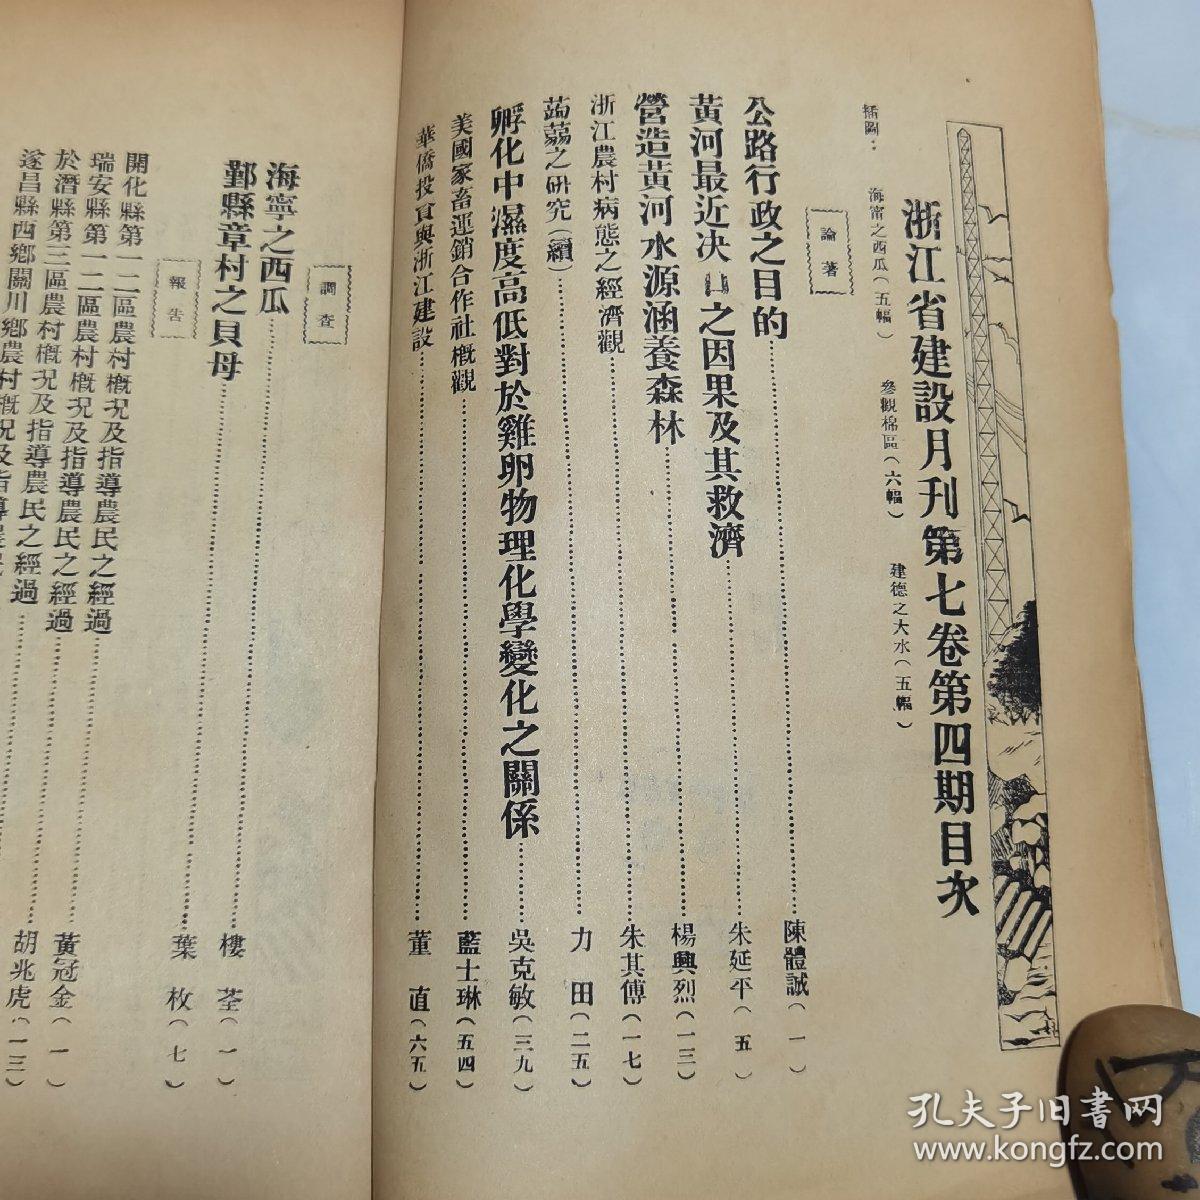 浙江省建設月刊第七卷第四期目次
插圖： 海甯之西瓜（五幅） 參觀棉區（六幅） 建德之大水（五幅）
論著
公路行政之目的……陳體誠（一）
黃河最近決口之因果及其救濟……朱延平（五）
營造黃河水源涵養森林……楊興烈（一三）
浙江農村病態之經濟觀……朱其傅（一七）
蒟蒻之研究（續）……力田（二五）
孵化中濕度高低對於雞卵物理化學變化之關係……吳克敏（三九）
美國家畜運銷合作社概觀……藍士琳（五四）
華僑投資與浙江建設……董直（六五）
調查
海寧之西瓜……樓荃（一）
鄞縣章村之貝母……葉枚（七）
報告
開化縣第一二區農村概況及指導農民之經過
瑞安縣第一二區農村概況及指導農民之經過
於潛縣第三區農村概況及指導農民之經過……黃冠金（一）
遂昌縣西鄉關川鄉農村概況及指導農民之經過……胡兆虎（一三）
孔夫子旧书网
www.kongfz.com